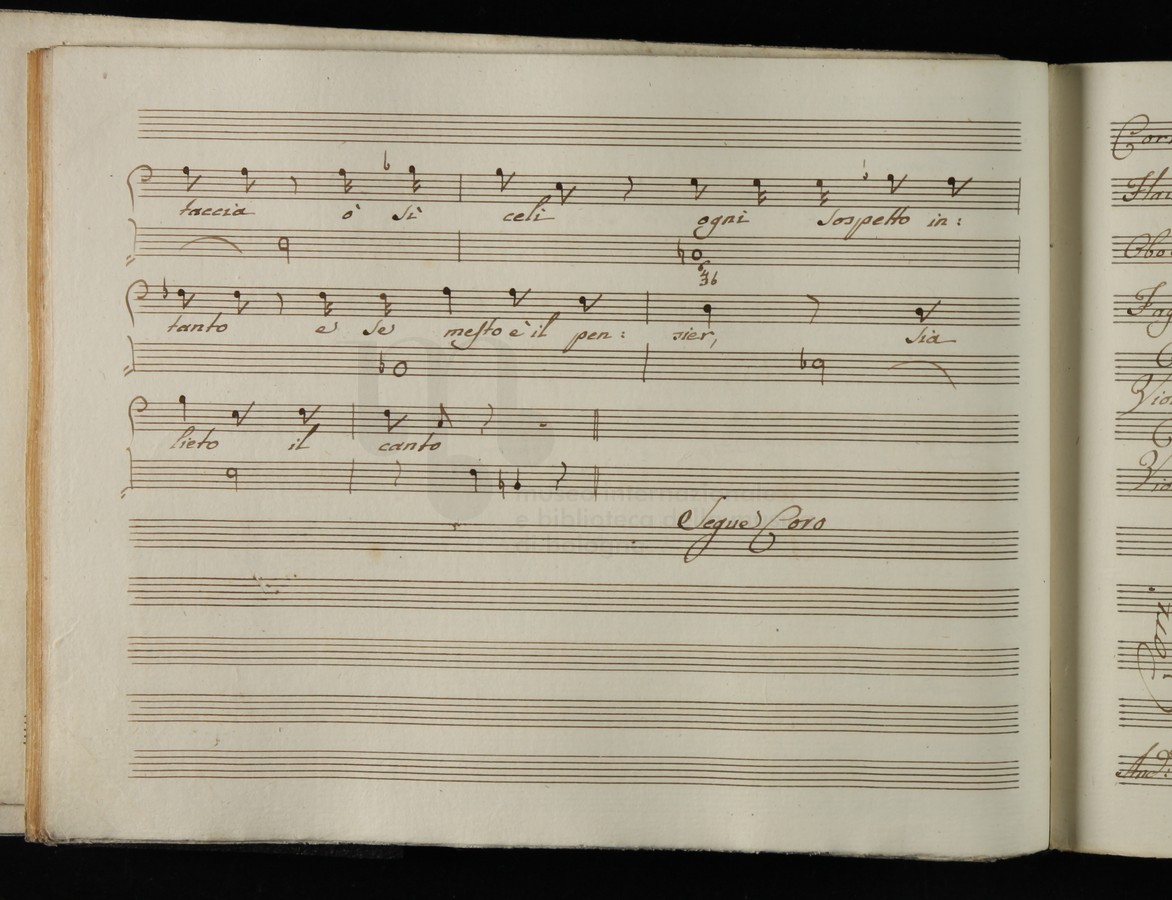 taccia ò si celi ogni sospetto in:
36
tanto e se mesto è il pen: sier, sia
lieto il canto
Segue Coro
museo internazionale
e biblioteca della musica
di bologna
Cor
Flau
Obo
Fag
Vio
Vio
And: